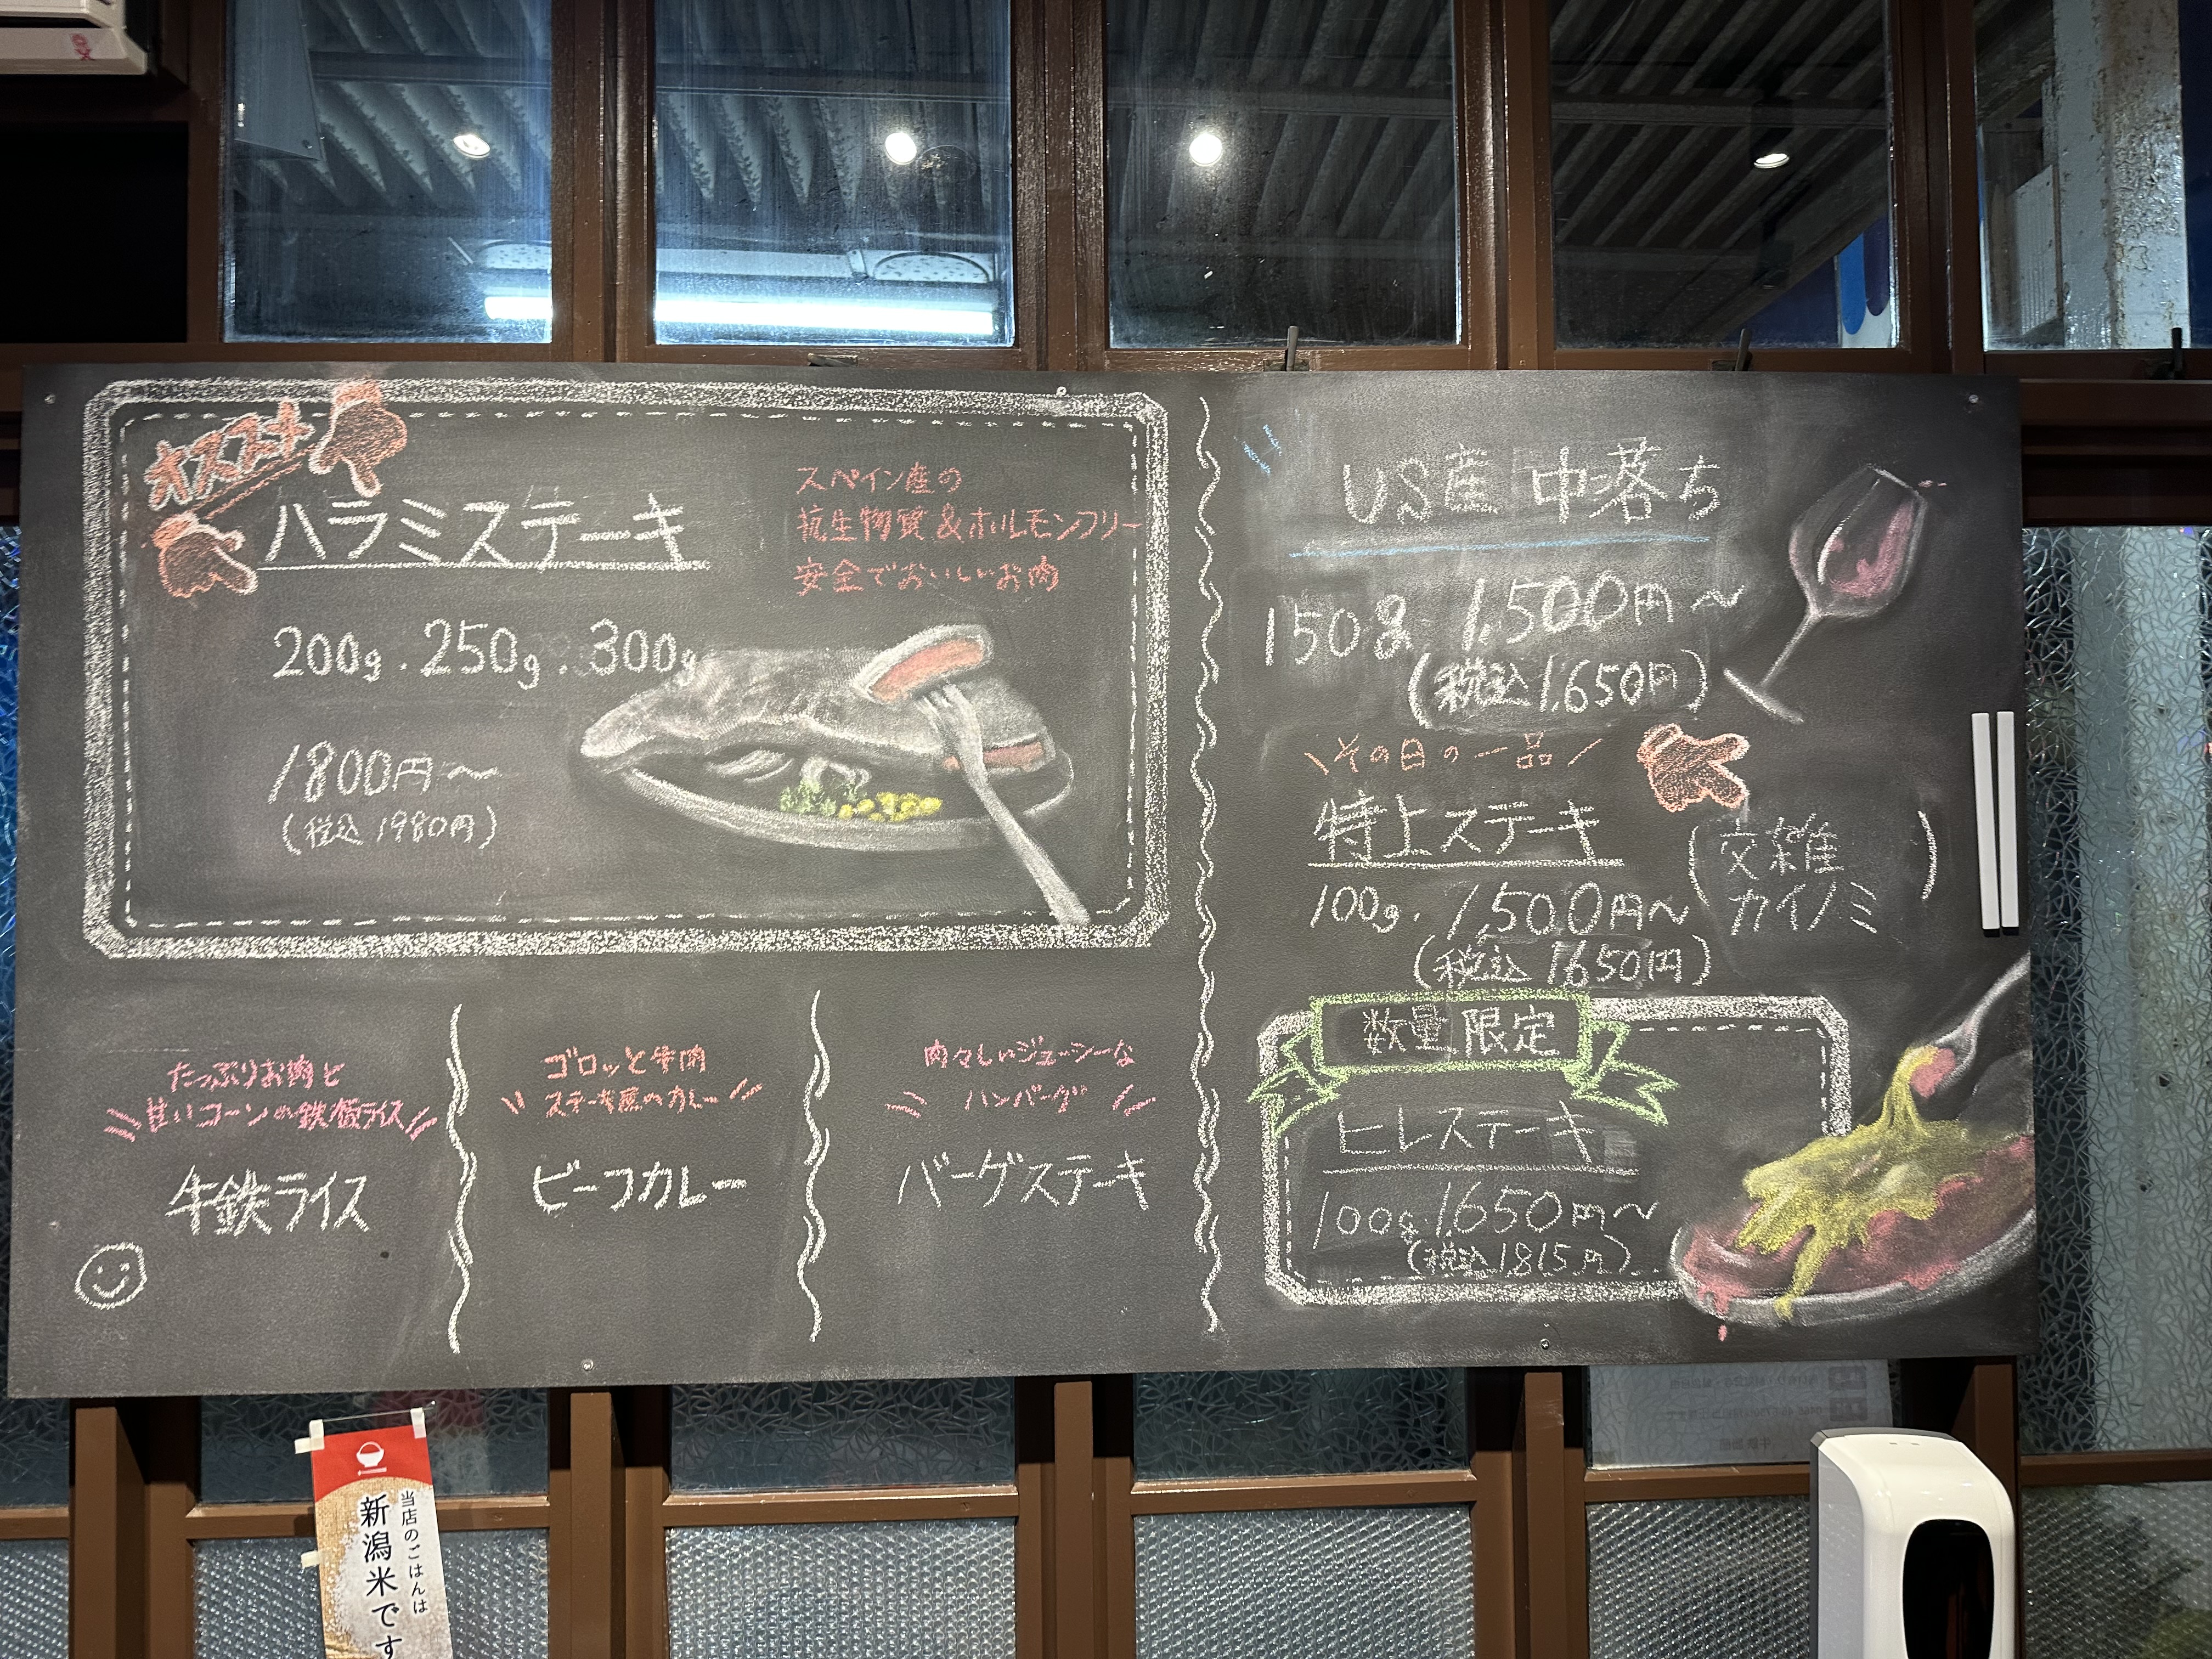 オススメ
ハラミステーキ
スペイン産の
抗生物質&ホルモンフリー
安全でおいしいお肉
200g.250g.300g
1800円〜
(税込1980円)
たっぷりお肉と
甘いコーンの鉄板ライス
牛鉄ライス
ゴロッと牛肉
ステーキ屋のカレー
ビーフカレー
肉々しいジューシーな
ハンバーグ
バーグステーキ
US産 中落ち
150g.1,500円〜
(税込1,650円)
\その日の一品/
特上ステーキ
(交雑
カイノミ)
100g.1,500円〜
(税込1650円)
数量限定
ヒレステーキ
100g.1,650円〜
(税込1,815円)
当店のごはんは
新潟米です